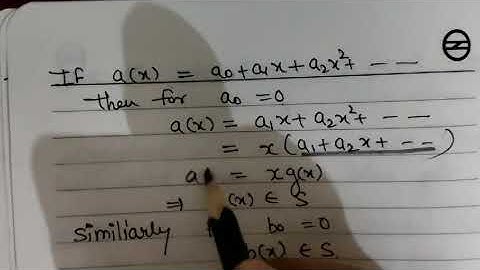 If a(x) = a₀+a₁x+a₂x²+ - -
then for a₀ = 0
a(x) = a₁x+a₂x²+ - -
= x(a₁+a₂x+ - -)
a = xg(x)
⇒ (x) ∈ S
Similiarly b₀ = 0
b(x) ∈ S.